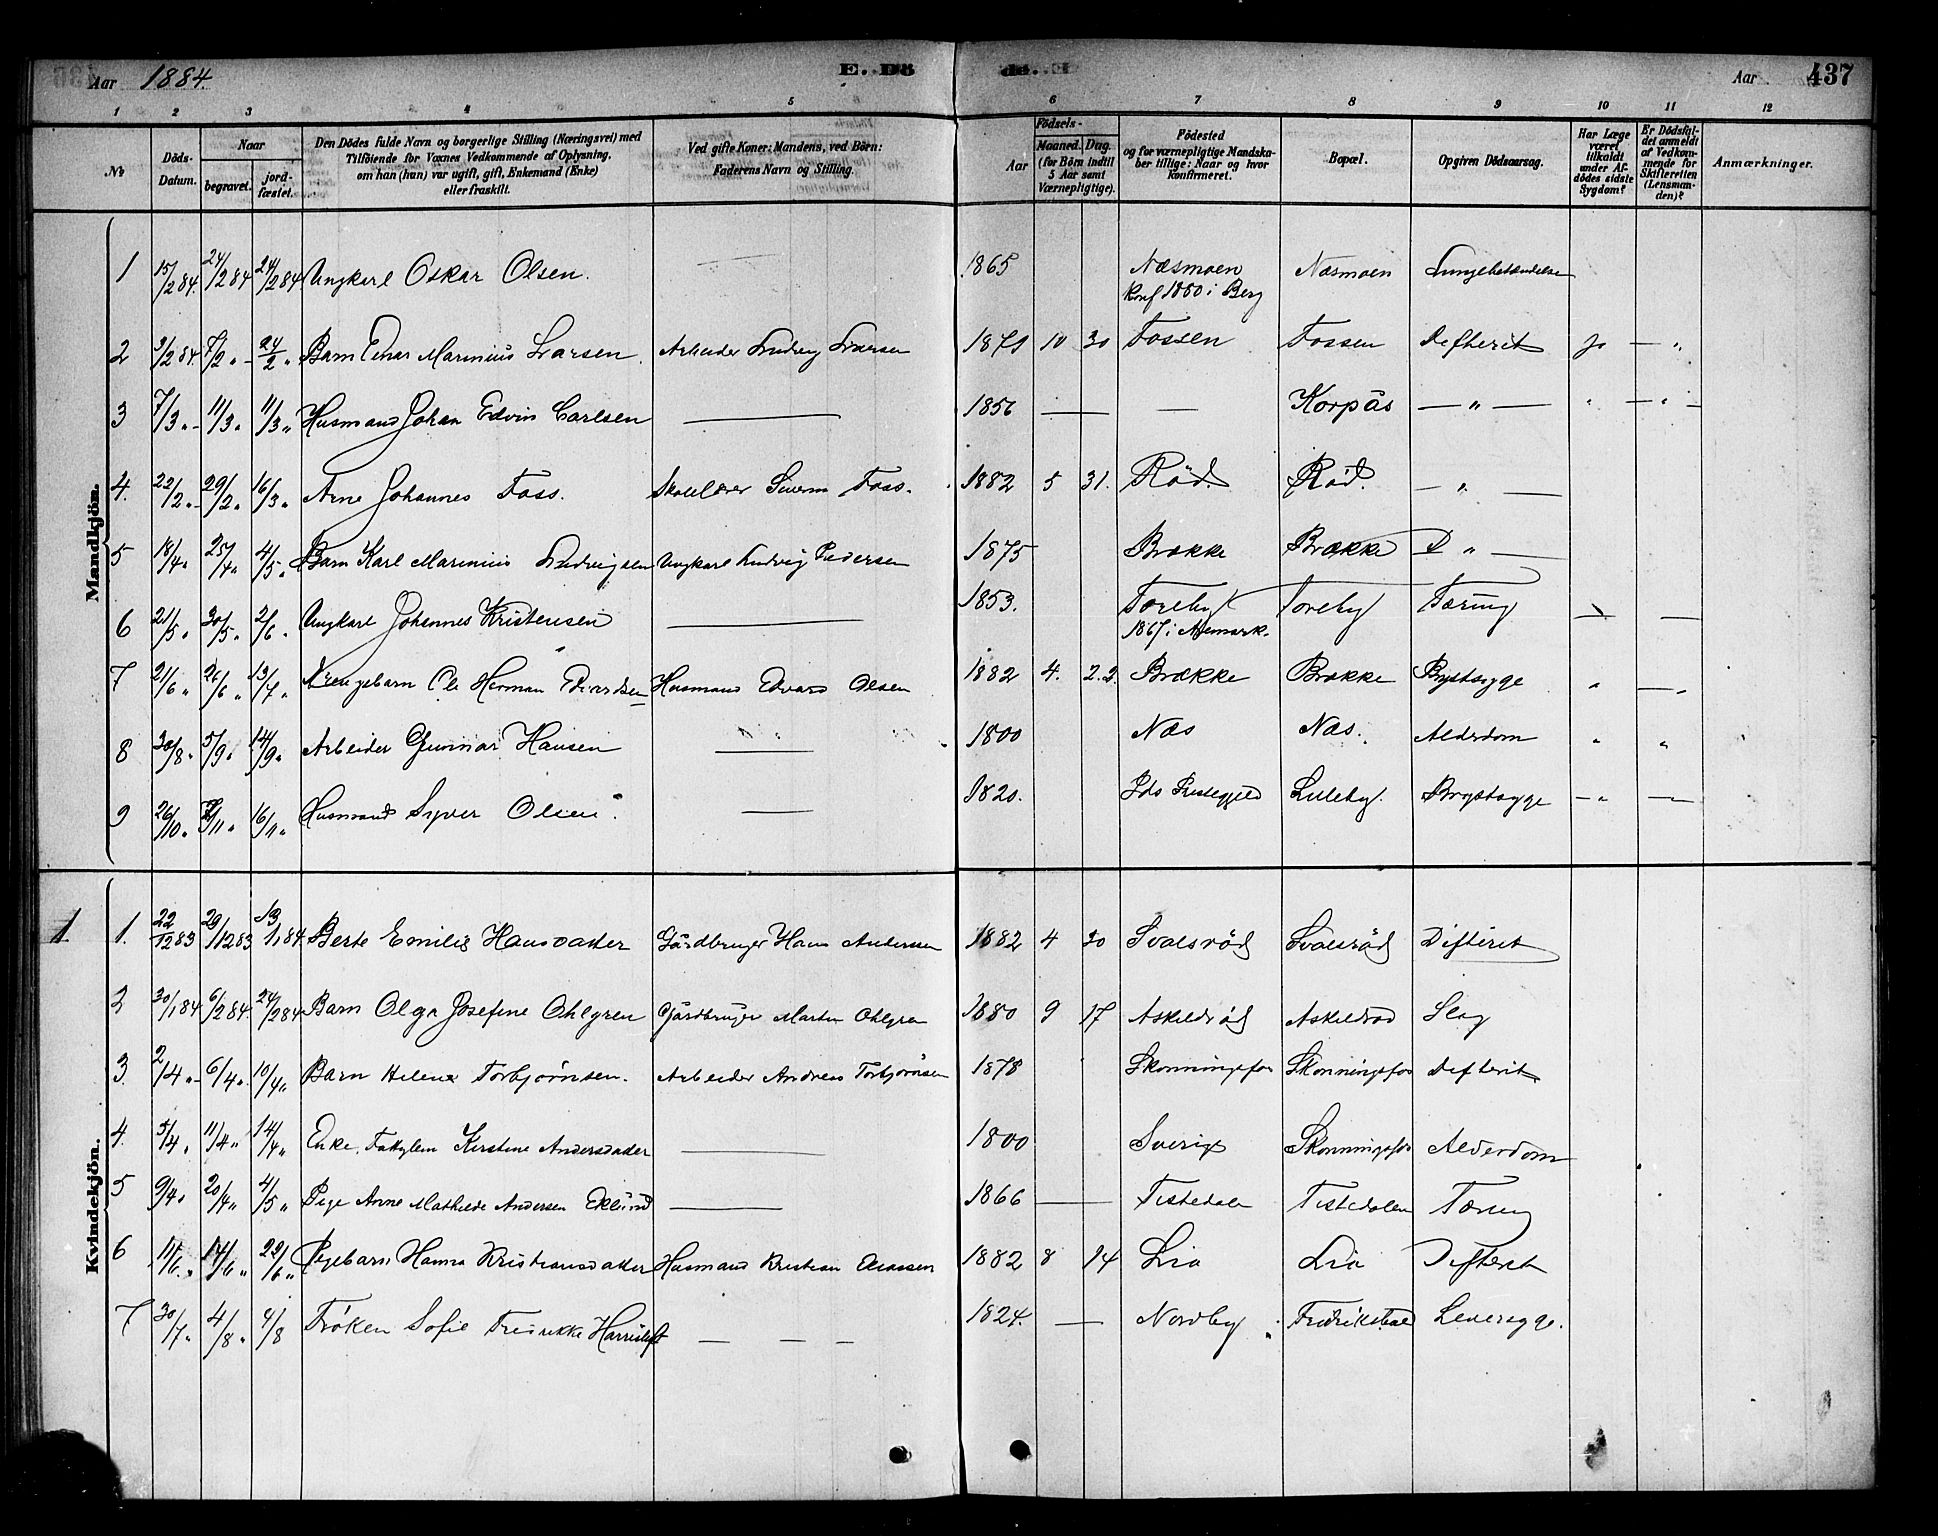 Aar 1884. E. Dö de. E Aar 437
1 2 3 4 5 6 7 8 9 10 11 12
No Döds-Datum. Naar begravet. jord-fæstet. Den Dödes fulde Navn og borgerlige Stilling (Næringsvei) med Tilföiende for Voxnes Vedkommende af Oplysning, om han (hun) var ugift, gift, Enkemand (Enke) eller fraskilt. Ved gifte Koner: Mandens, ved Börn: Faderens Navn og Stilling. Födsels- Aar Maaned. Dag. (for Börn indtil 5 Aar samt Værnepligtige). Födested og for værnepligtige Mandskaber tillige: Naar og hvor konfirmeret. Bopæl. Opgiven Dödsaarsag. Har Læge været tilkaldt under Afdödes sidste Sygdom? Er Dödsfaldet anmeldt af Vedkommende for Skifteretten (Lensmanden)? Anmærkninger.
Mandkjön.
1 15/2 84. 24/2 84 24/2 84 Ungkarl Oskar Olsen. 1865 Næsmoen Næsmoen Lungebetændelse
Konf 1880 i Berg
2 3/2 84. 7/2 " 24/2 " Barn Einar Marinius Larsen. Arbeider Ludvig Larsen 1879 10 30 Fossen Fossen Defterit Ja — "
3 7/3 " 11/3 " 11/3 " Husmand Johan Edvin Carlsen — 1856 — — Korpås — " — " — " —
4. 22/2 " 29/2 " 16/3 " Arne Johannes Foss. Skolelærer Foss. 1882 5 31. Röd. Röd. — " —
5 18/4 " 25/4 " 4/5 " Barn Karl Marinius Ludvigsen Ungkarl Ludvig Pedersen 1875 Brække Brække D " —
6 21/5 " 30/5 " 2/6 " Ungkarl Johannes Kristensen — 1853. Toreby Toreby Tæring
1867 i Aremark.
7 21/6 " 26/6 " 13/7 " Drengebarn Ole Herman Edvardsen Husmand Edvard Olsen 1882 4. 22. Brække Brække Brystsyge " — "
8 30/8 " 5/9 " 14/9 " Arbeider Gunnar Hansen — 1800 Næs Næs. Alderdom " "
9 26/10 " /11 " 16/11 " Husmand Syver Olsen. — 1820. Ids Prestegjeld Luleby. Brystsyge — " —
Kvindekjön.
1 1. 22/12 83 29/12 83 13/1 84. Berte Emilie Hansdatter Gårdbruger Hans Andersen 1882 4 30 Svalsröd Svalsröd Difterit
2 30/1 84 6/2 84. 24/2 84 Barn Olga Josefine Ohlgren Gårdbruger Martin Ohlgren 1880 9 17 Askildröd Askildröd Slag
3. 2/4 " 6/4 " 10/4 " Barn Helene Torbjörnsen. Arbeider Andreas Torbjörnsen 1878 Skonningsfos Skonningsfos Defterit
4. 5/4 " 11/4 " 14/4 " Enke, Kirstine Andersdatter — 1800 Sverige Skonningsfos Alderdom
5 9/4 " 20/4 " 4/5 " Pige Anne Mathilde Andersen Eklund — 1866 — Tistedalen Tistedalen Tæring
6 11/6 " 14/6 " 22/6 " Pigebarn Hanna Kristiansdatter Husmand Kristian 1882 8 14 Lia Lia Difterit
7 30/7 " 4/8 " 4/8 Fröken Sofie Fredrikke — — — 1824. — Nordby Fredrikshald Leversyge.